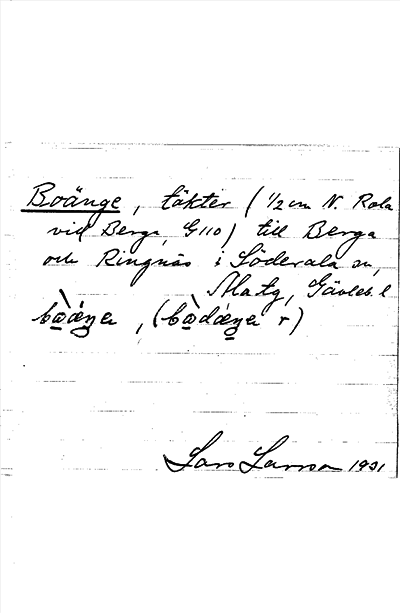 Boänge, täkter (1/2 cm N. Rala
vid Berga, G110) till Berga
och Ringnäs i Söderala sn,
Matg, Gävleb. l
bòæŋer, (bòdæŋer r)
Lars Larsson 1931